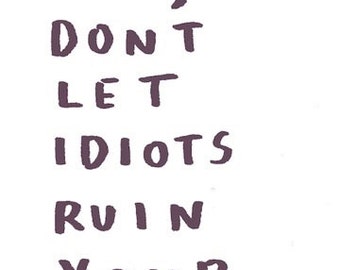 DONT
LET
IDIOTS
RUIN